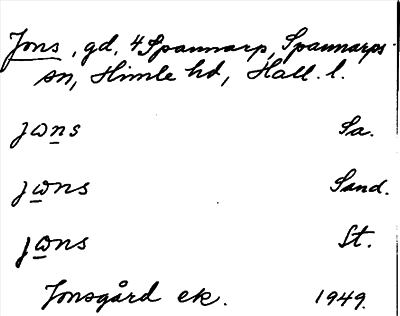 Jons, gd, 4 Spannarp, Spannarps
sn, Himle hd, Hall. l.
jωns Sa.
jωns Sand.
jωns St.
Jonsgård ek. 1949.